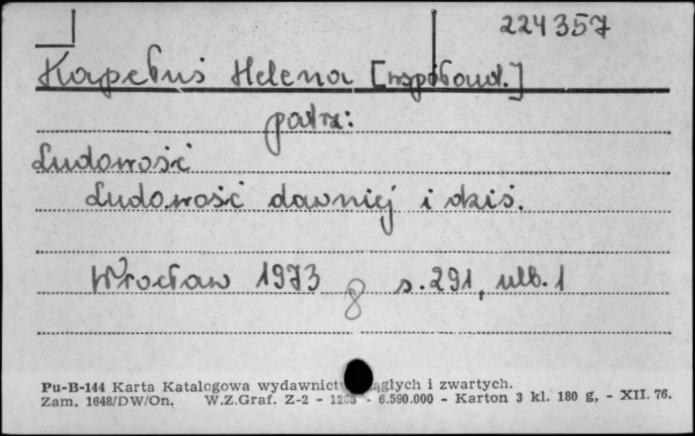 224357
Kapełuś Helena [współaud.]
patrz:
Ludowość
Ludowość dawniej i dziś.
Wrocław 1973 8 s. 291, ulb. 1
Pu-B-144 Karta Katalogowa wydawnict ągłych i zwartych.
Zam. 1648/DW/On. W.Z.Graf. Z-2 - 6.590.000 - Karton 3 kl. 180 g, - XII. 76.